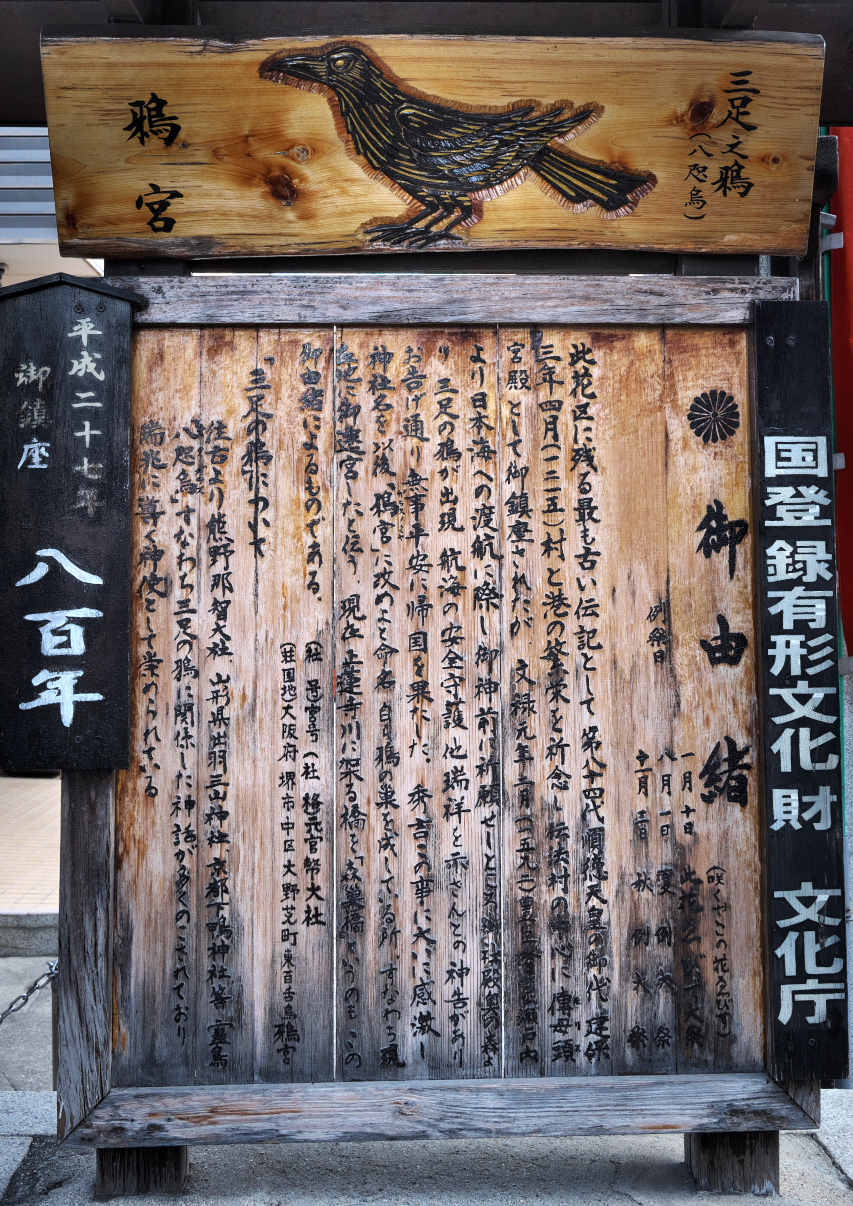 三足之鴉
(八咫烏)
鴉宮
国登録有形文化財 文化庁
御由緒
(咲くやこの花ゑびす)
一月十日 此花ゑびす大祭
八月一日 夏例大祭
例祭日
秋例大祭
此花区に残る最も古い伝記として 第八十四代 順徳天皇の御代 建保
三年四月(一二一五)村と港の繁栄を祈念し 伝法村の中心に 傳母頭
宮殿 として御鎮座されたが 文禄元年 二月(一五九二)豊臣秀吉 瀬戸内
より日本海への渡航に際し 御神前に祈願せしところ 御社殿奥の森よ
り 三足の鴉が出現 航海の安全守護 他瑞祥を示さんとの神告があり
お告げ通り無事平安に帰国を果たした。秀吉この事に大いに感激し
神社名を以後「鴉宮」に改めよと命名 自ら鴉の巣を成している所、すなわち現
在地に御遷宮したと伝う。現在 正蓮寺川に架る橋を「森巣橋」というのも この
御由緒によるものである。
(荘園地)大阪府 堺市 中区 大野芝町 東百舌鳥 鴉宮
「三足の鴉」について
往古より熊野那智大社、山形県出羽三山神社 京都下鴨神社等 霊鳥
八咫烏」すなわち三足の鴉に関係した神話が多くのこされており
瑞兆に導く神使として崇められている
平成二十七年
御鎮座
八百年